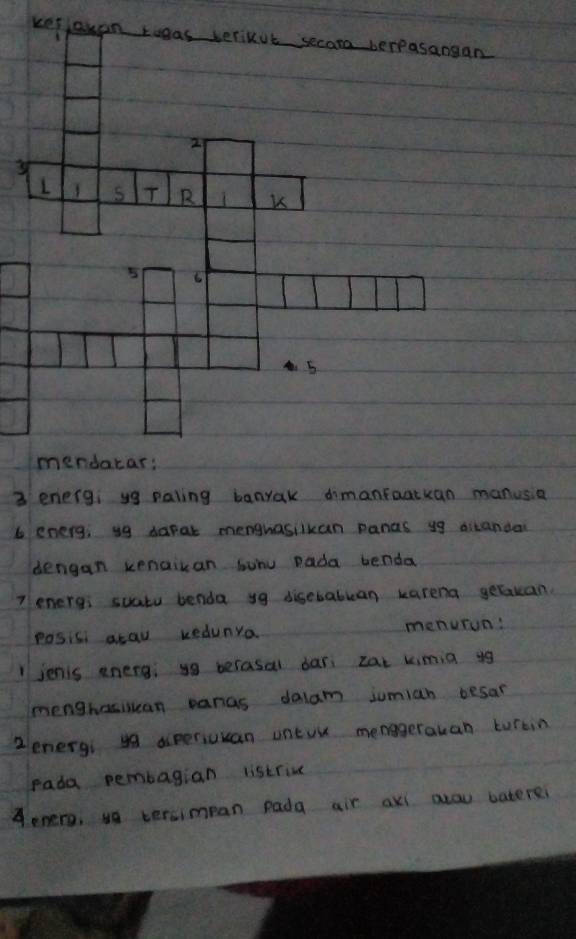 kerjakan tugas berikut secara berpasangan
2
3 L I S T R I K
5 6
5
mendatar:
3 energi yg paling banyak dimanfaatkan manusia
6 energi yg dapat menghasilkan panas yg ditandai
dengan kenaikan suhu pada benda
7 energi suatu benda yg disebabkan karena gerakan.
posisi atau kedunya.
menurun:
1 jenis energi yg berasal dari zat kimia yg
menghasilkan panas dalam jumlah besar
2 energi yg diperlukan untuk menggerakan turbin
pada pembagian listrik
4 energi yg tersimpan pada air aki atau baterei